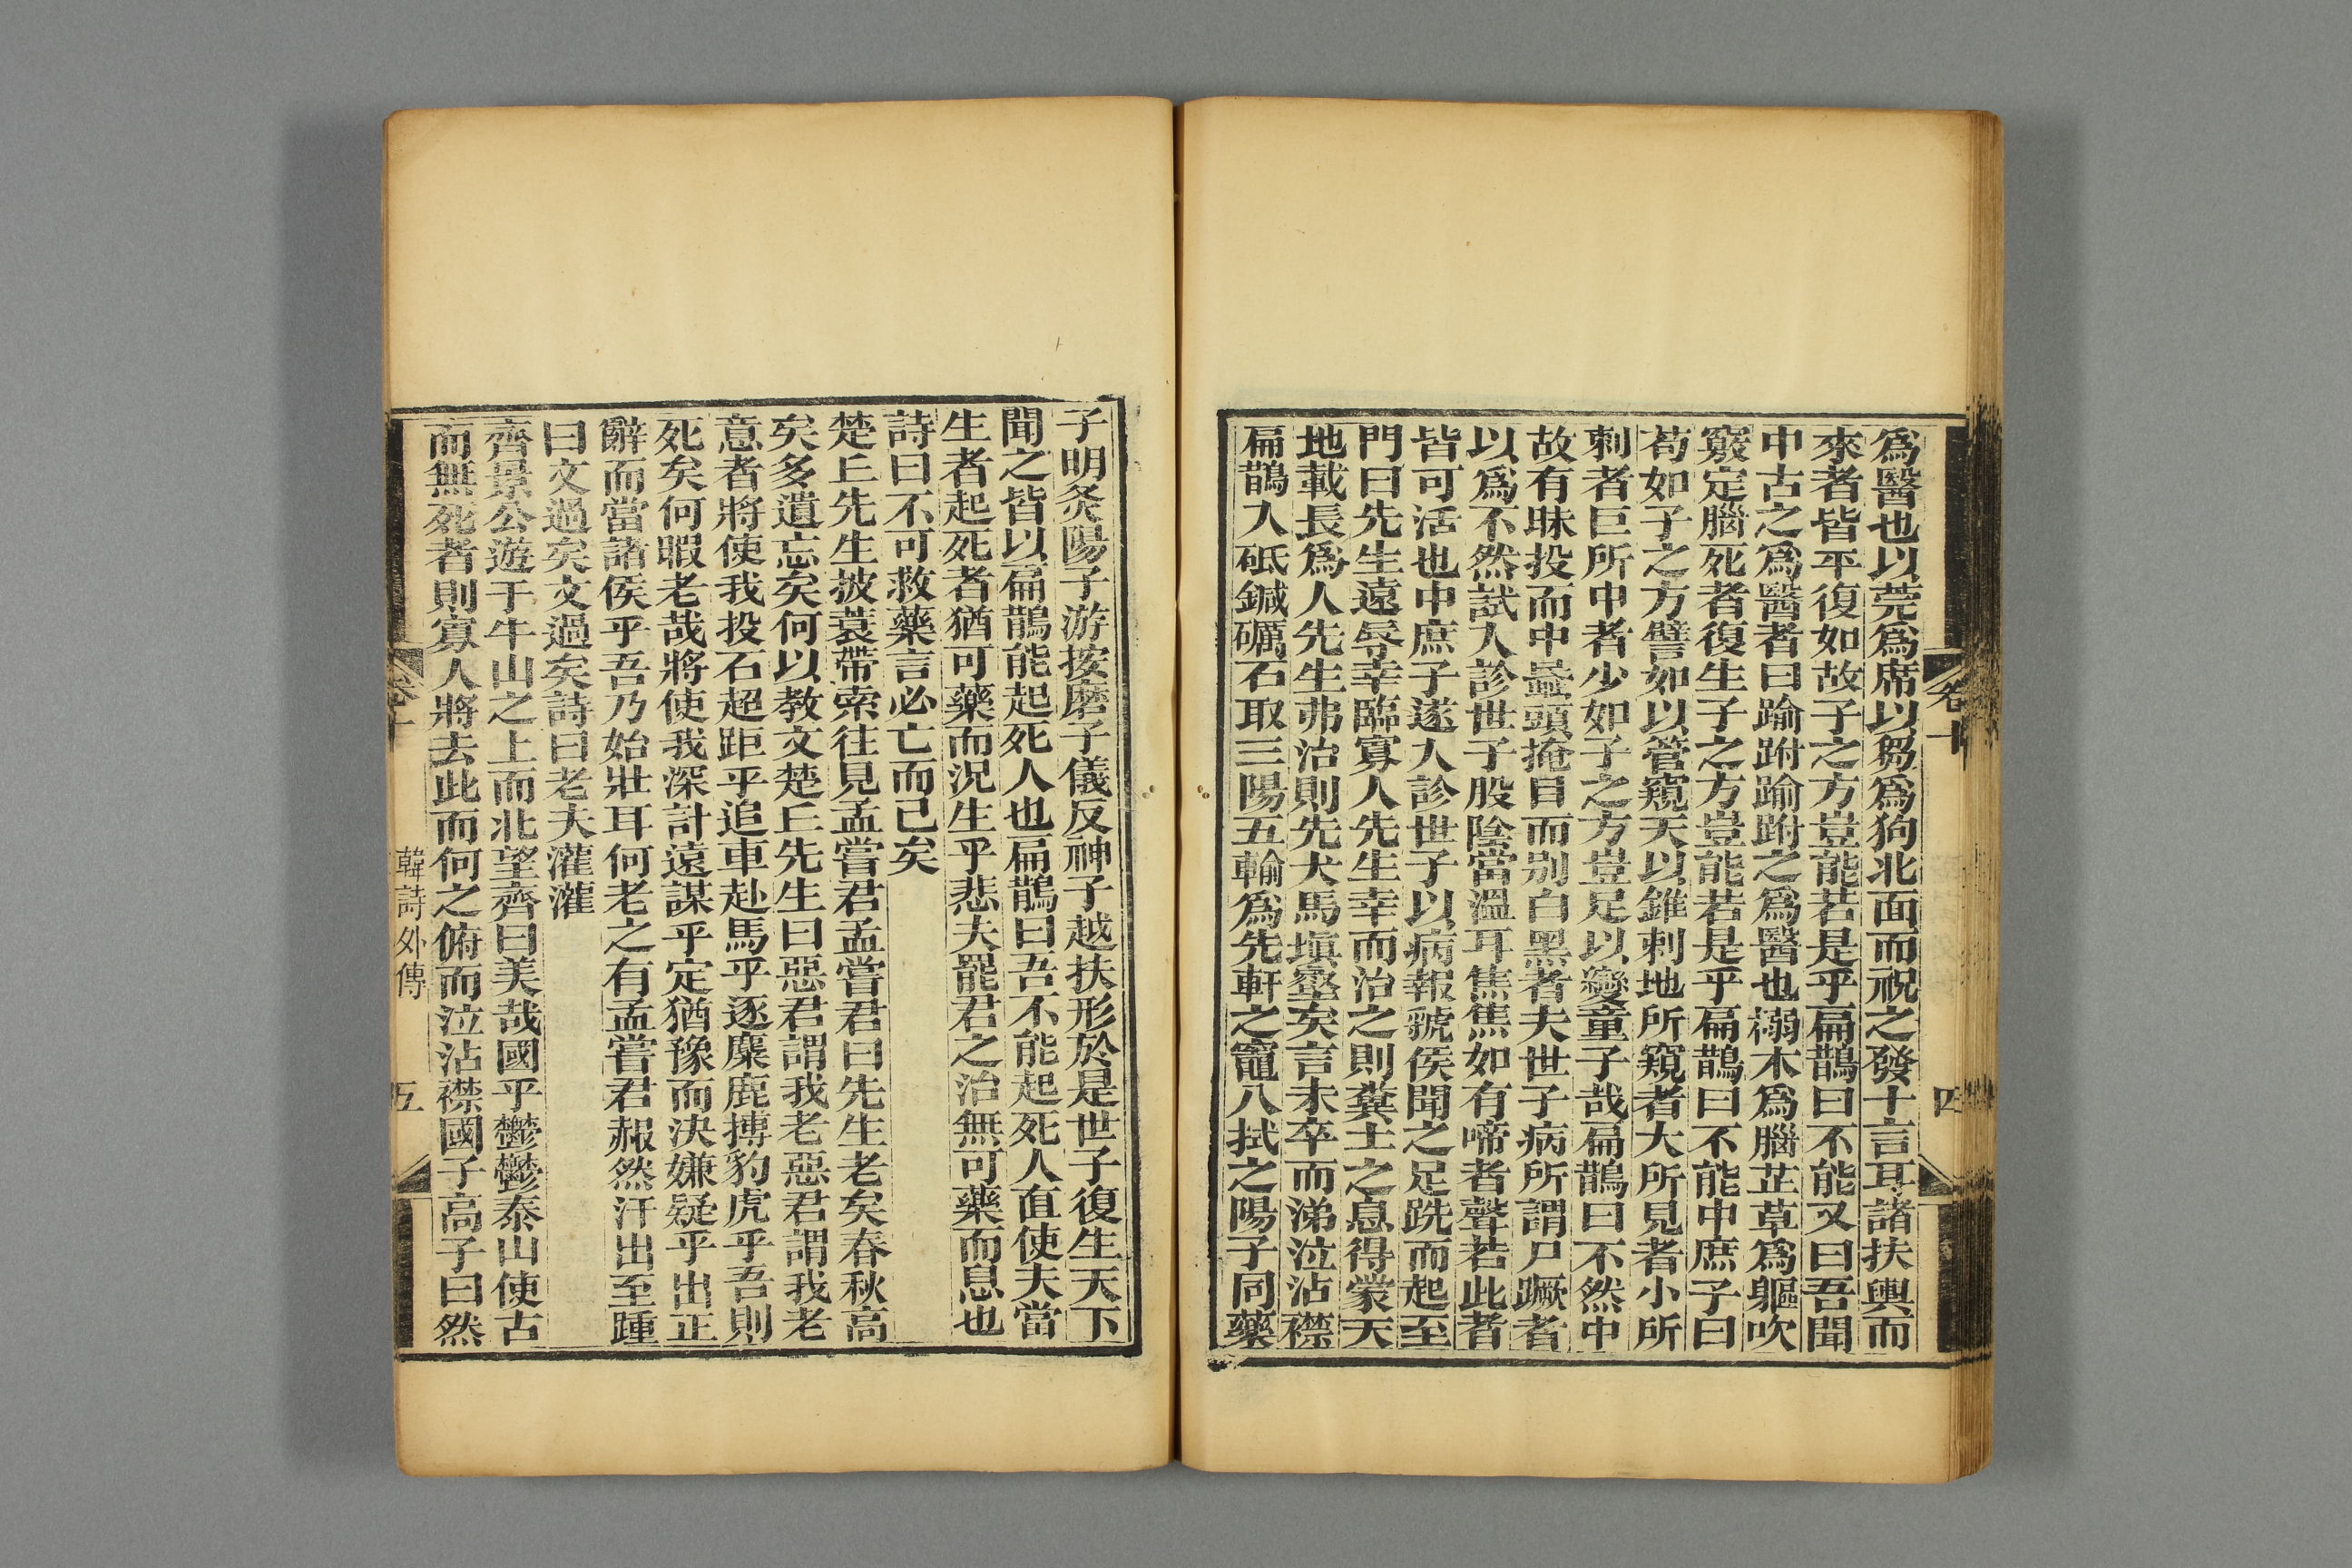 爲醫也以莞爲席以芻爲狗北面而祝之發十言耳諸扶輿而
來者皆平復如故子之方豈能若是乎扁鵲曰不能又曰吾聞
中古之爲醫者曰踰跗踰跗之爲醫也搦木爲腦芷草爲軀吹
竅定腦死者復生子之方豈能若是乎扁鵲曰不能中庶子曰
苟如子之方譬如以管窺天以錐刺地所窺者大所見者小所
刺者巨所中者少如子之方豈足以變童子哉扁鵲曰不然中
故有昧投而中蟁頭掩目而別白黑者夫世子病所謂尸蹶者
以爲不然試入診世子股陰當溫耳焦焦如有啼者聲若此者
皆可活也中庶子遂入診世子以病報虢侯聞之足跣而起至
門曰先生遠辱幸臨寡人先生幸而治之則糞土之息得蒙天
地載長爲人先生弗治則先犬馬塡壑矣言未卒而涕泣沾襟
扁鵲入砥鍼礪石取三陽五輸爲先軒之竈八拭之陽子同藥
卷十
四
子明灸陽子游按磨子儀反神子越扶形於是世子復生天下
聞之皆以扁鵲能起死人也扁鵲曰吾不能起死人直使夫當
生者起死者猶可藥而況生乎悲夫罷君之治無可藥而息也
詩曰不可救藥言必亡而已矣
楚丘先生披蓑帶索往見孟嘗君孟嘗君曰先生老矣春秋高
矣多遺忘矣何以教文楚丘先生曰惡君謂我老惡君謂我老
意者將使我投石超距乎追車赴馬乎逐麋鹿搏豹虎乎吾則
死矣何暇老哉將使我深計遠謀乎定猶豫而決嫌疑乎出正
辭而當諸侯乎吾乃始壯耳何老之有孟嘗君赧然汗出至踵
曰文過矣文過矣詩曰老夫灌灌
齊景公遊于牛山之上而北望齊曰美哉國乎鬱鬱泰山使古
而無死者則寡人將去此而何之俯而泣沾襟國子高子曰然
卷十
韓詩外傳
五